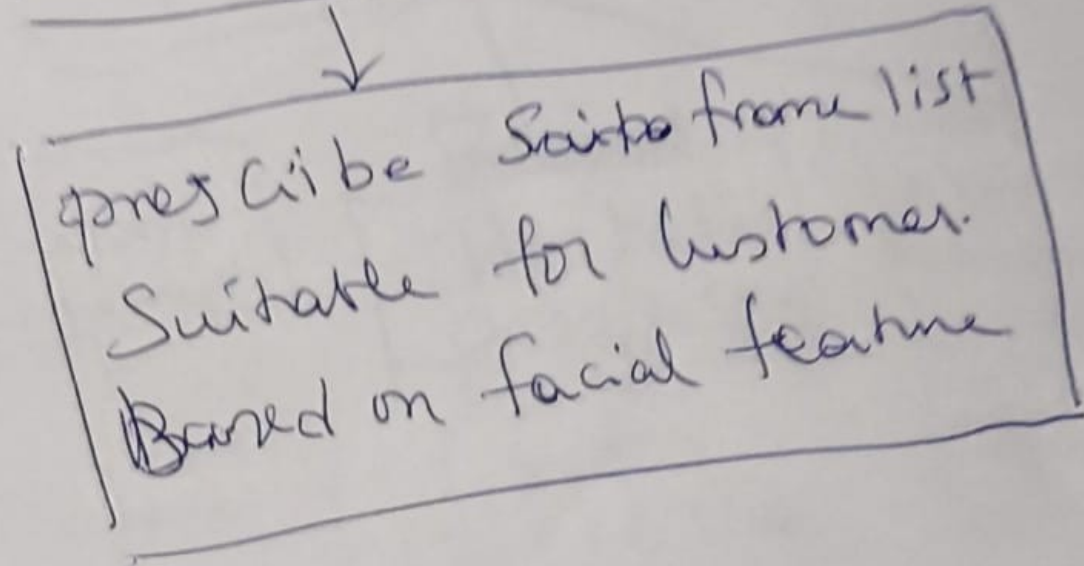 prescribe frame list
Suitable for Customer.
Based on facial feature